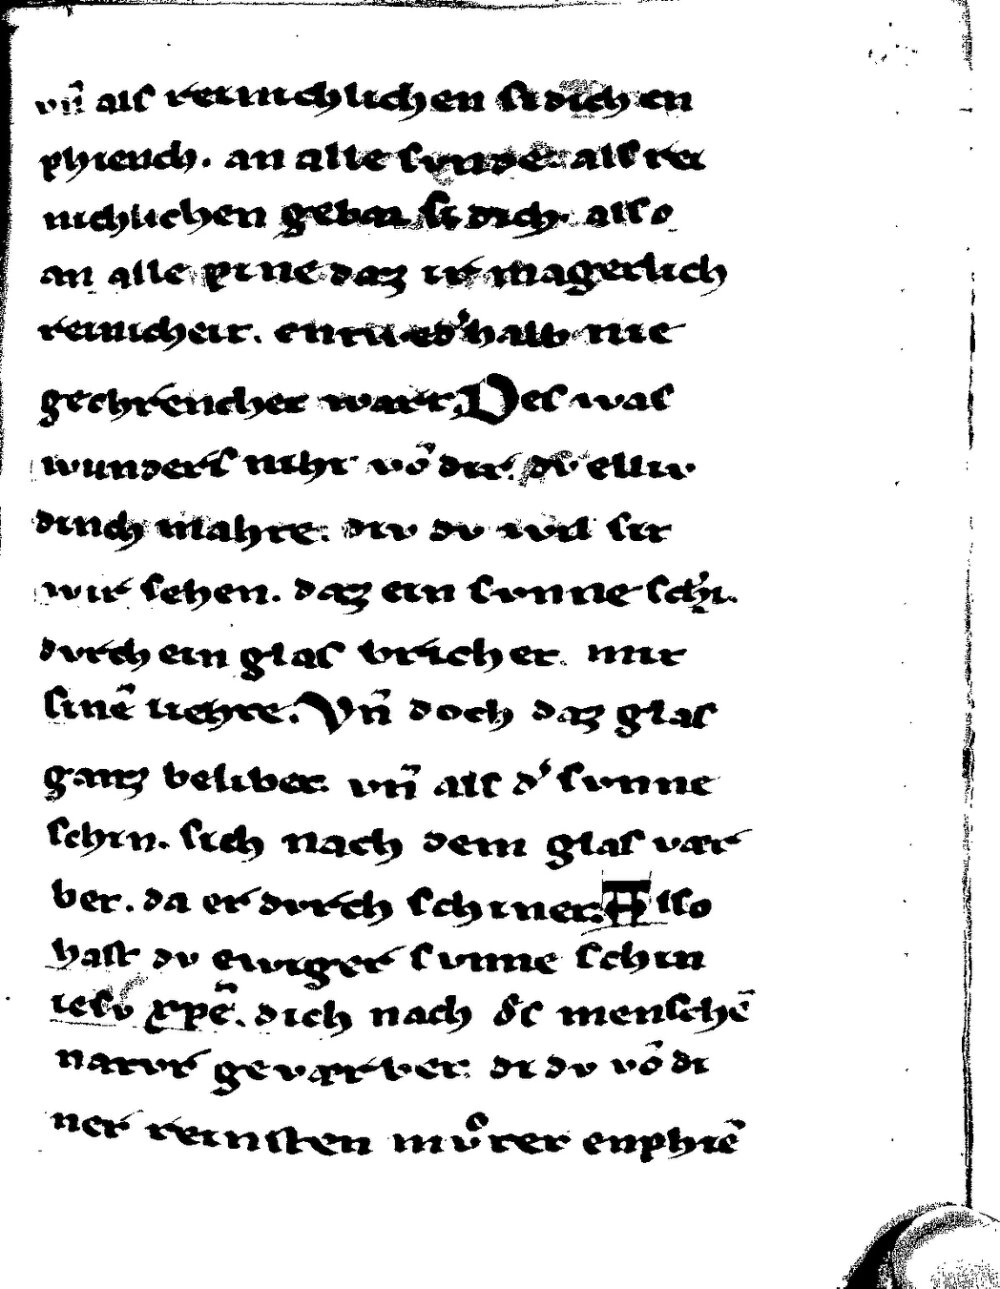 vn̄ als reinichlichen si dich en
phiench. an alle svnde. als rei
nichlichen gebar si dich. also
an alle pine daz ir magetlich
reinicheit. entwed'halb nie
gechrencher wart. Des was
wunders niht vō dir. dv elliv
dinch mahte. div dv wil sit
wir sehen. daz ein svnne schı̄.
dvrch ein glas brichet. mit
sinē liehte. Vn̄ doch daz glas
ganz belibet. vn̄ als d' svnne
schin. sich nach dem glas vær
bet. da er dvrch schinet. Also
hast dv ewiger svnne schin
iesv xp̄e. dich nach d's menschē
natvr geværbet. di dv vō di
ner reinsten mvͦter enphiē